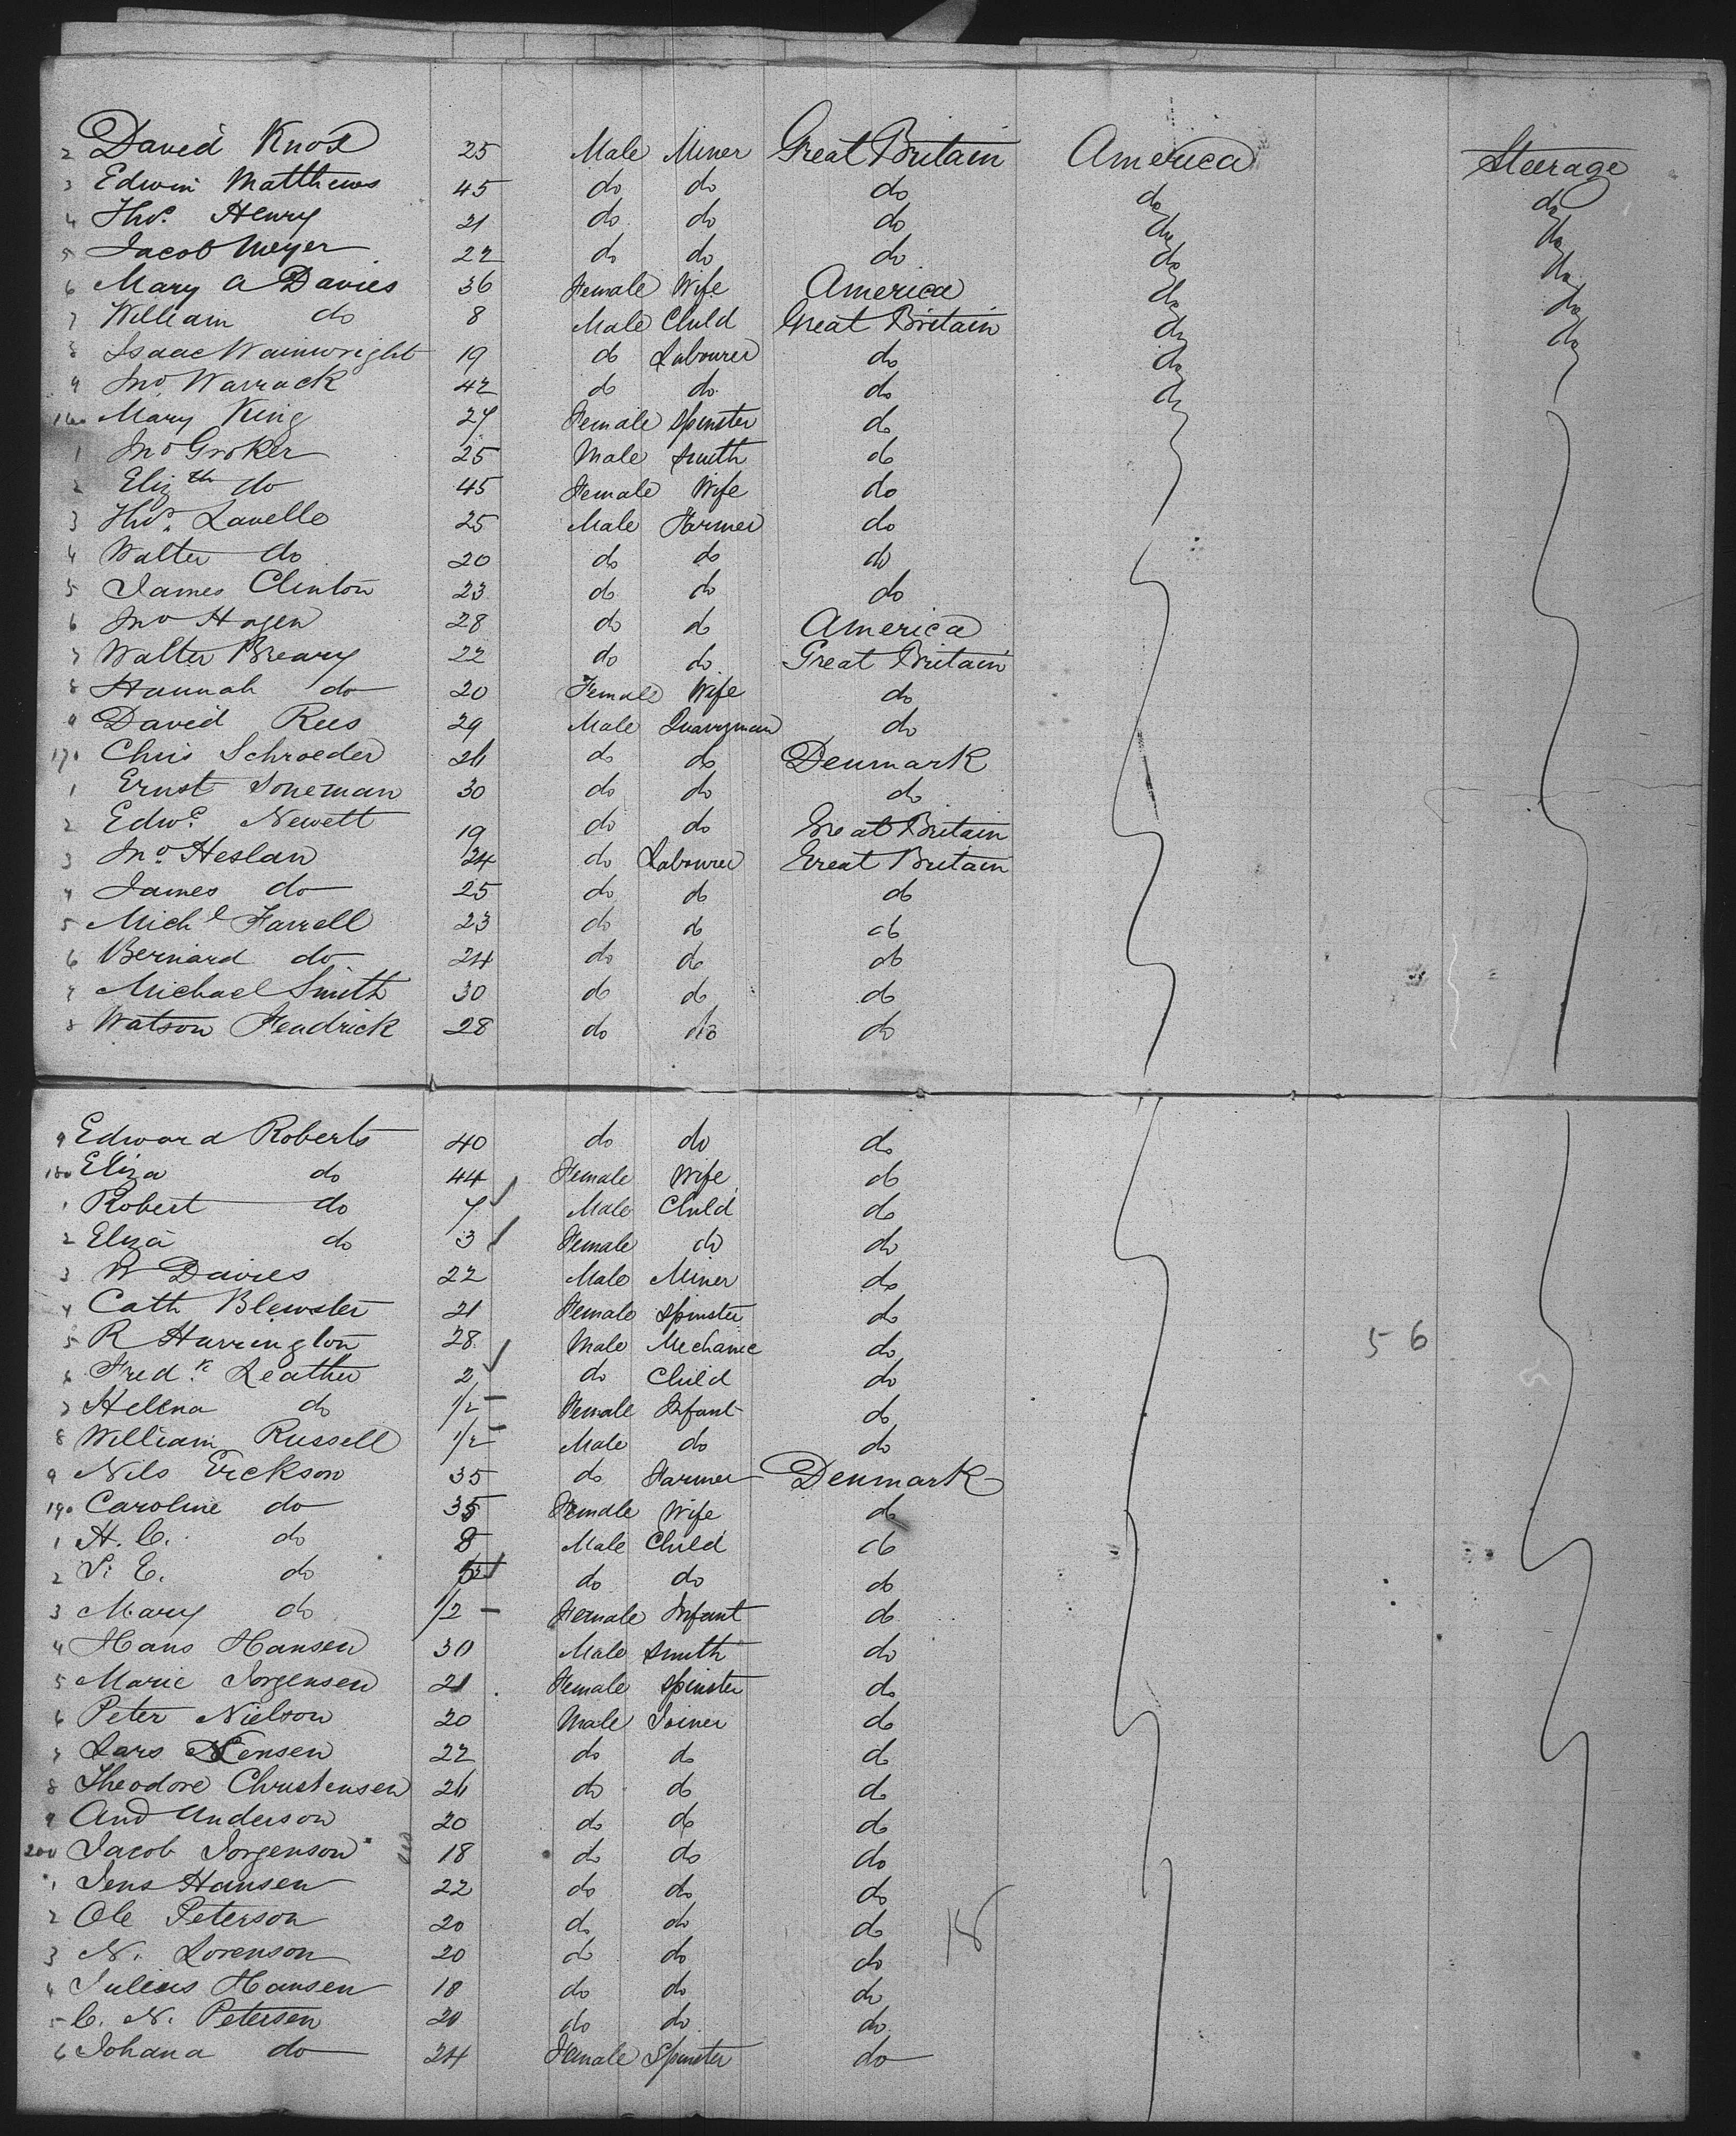 2 David Knox 25 Male Miner Great Britain America Steerage
3 Edwin Matthews 45 do do do do do
4 Thos. Henry 21 do do do do do
5 Jacob Meyer 22 do do do do do
6 Mary A Davies 36 Female Wife America do do
7 William do 8 Male Child Great Britain do do
8 Isaac Wainwright 19 do Labourer do do
9 Jno. Warrack 42 do do do do
160 Mary King 27 Female Spinster do
1 Jno Groker 25 Male Smith do
2 Elizth do 45 Female Wife do
3 Thos. Lavelle 25 Male Farmer do
4 Walter do 20 do do do
5 James Clinton 23 do do do
6 Jno Hagen 28 do do America
7 Walter Breary 22 do do Great Britain
8 Hannah do 20 Female Wife do
9 David Rees 29 Male Quarryman do
170 Chris Schroeder 26 do do Denmark
1 Ernst Soneman 30 do do do
2 Edwd. Newett 19 do do Great Britain
3 Jno. Heslan 24 do Labourer Great Britain
4 James do 25 do do do
5 Michl Farrell 23 do do do
6 Bernard do 24 do do do
7 Michael Smith 30 do do do
8 Watson Fendrick 28 do do do
9 Edward Roberts 40 do do do
180 Eliza do 44 Female Wife do
1 Robert do 7 Male Child do
2 Eliza do 3 Female do do
3 W Davies 22 Male Miner do
4 Cath Blewster 21 Female Spinster do
5 R Harrington 28 Male Mechanic do 56
6 Fredk. Leather 2 do Child do
7 Helena do 1/2 Female Infant do
8 William Russell 1/2 Male do do
9 Nils Erickson 35 do Farmer Denmark
190 Caroline do 35 Female Wife do
1 H. C. do 8 Male Child do
2 S. E. do do do do
3 Mary do 1/2 Female Infant do
4 Hans Hansen 30 Male Smith do
5 Marie Jorgensen 21 Female Spinster do
6 Peter Nielson 20 Male Joiner do
7 Lars Jensen 22 do do do
8 Theodore Christensen 26 do do do
9 And Anderson 20 do do do
200 Jacob Jorgenson 18 do do do
1 Jens Hansen 22 do do do
2 Ole Peterson 20 do do do
3 N. Lorenson 20 do do do
4 Julius Hansen 18 do do do
5 C. N. Petersen 20 do do do
6 Johana do 24 Female Spinster do